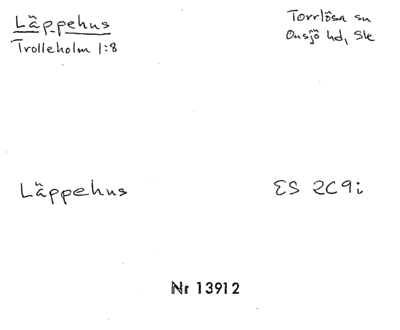 Läppehus
Trolleholm 1:8
Torrlösa sn
Onsjö hd, Sk
Läppehus
ES 2C9i
Nr 13912